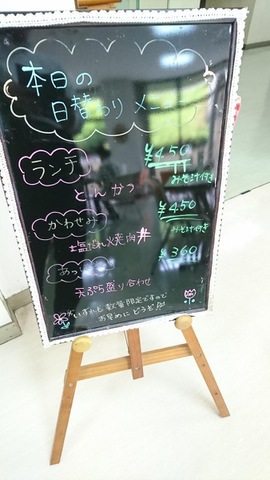 本日の
日替わり メニュー
ランチ
¥450
みそ汁付き
とんかつ
かわせみ
¥450
みそ汁付き
塩だれ焼肉丼
¥360
天ぷら盛り合わせ
いずれも 数量限定ですので
お早めに どうぞ!!